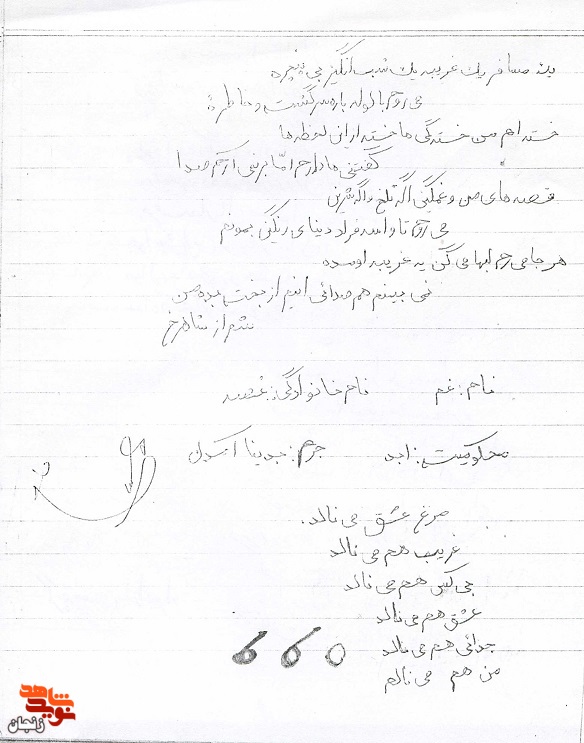 یه مسافر یك غریبه یك شب انگیز بی پنجره
می روم با کوله باره سرگذشت و خاطره
خسته ام من خستگی ها خسته از این لحظه ها
گفتنی ها دارم امّا برنمی آرم صدا
قصه های من و غمگینی اگه تلخ و اگه شیرین
می روم تا وا سه فردا دنیای رنگینی بمونم
هر جا می رم لبها می گن یه غریبه اومده
نمی بینم هم صدائی اینم از بخت بده من
شعر از شاهرخ
نام: غم نام خانوادگی: غصه
محکومیت: ابد جرم:
مرغ عشق می نالد.
غریب هم می نالد
بی کس هم می نالد
عشق هم می نالد
جدائی هم می نالد
من هم می نالم
نوید شاهد
زنجان